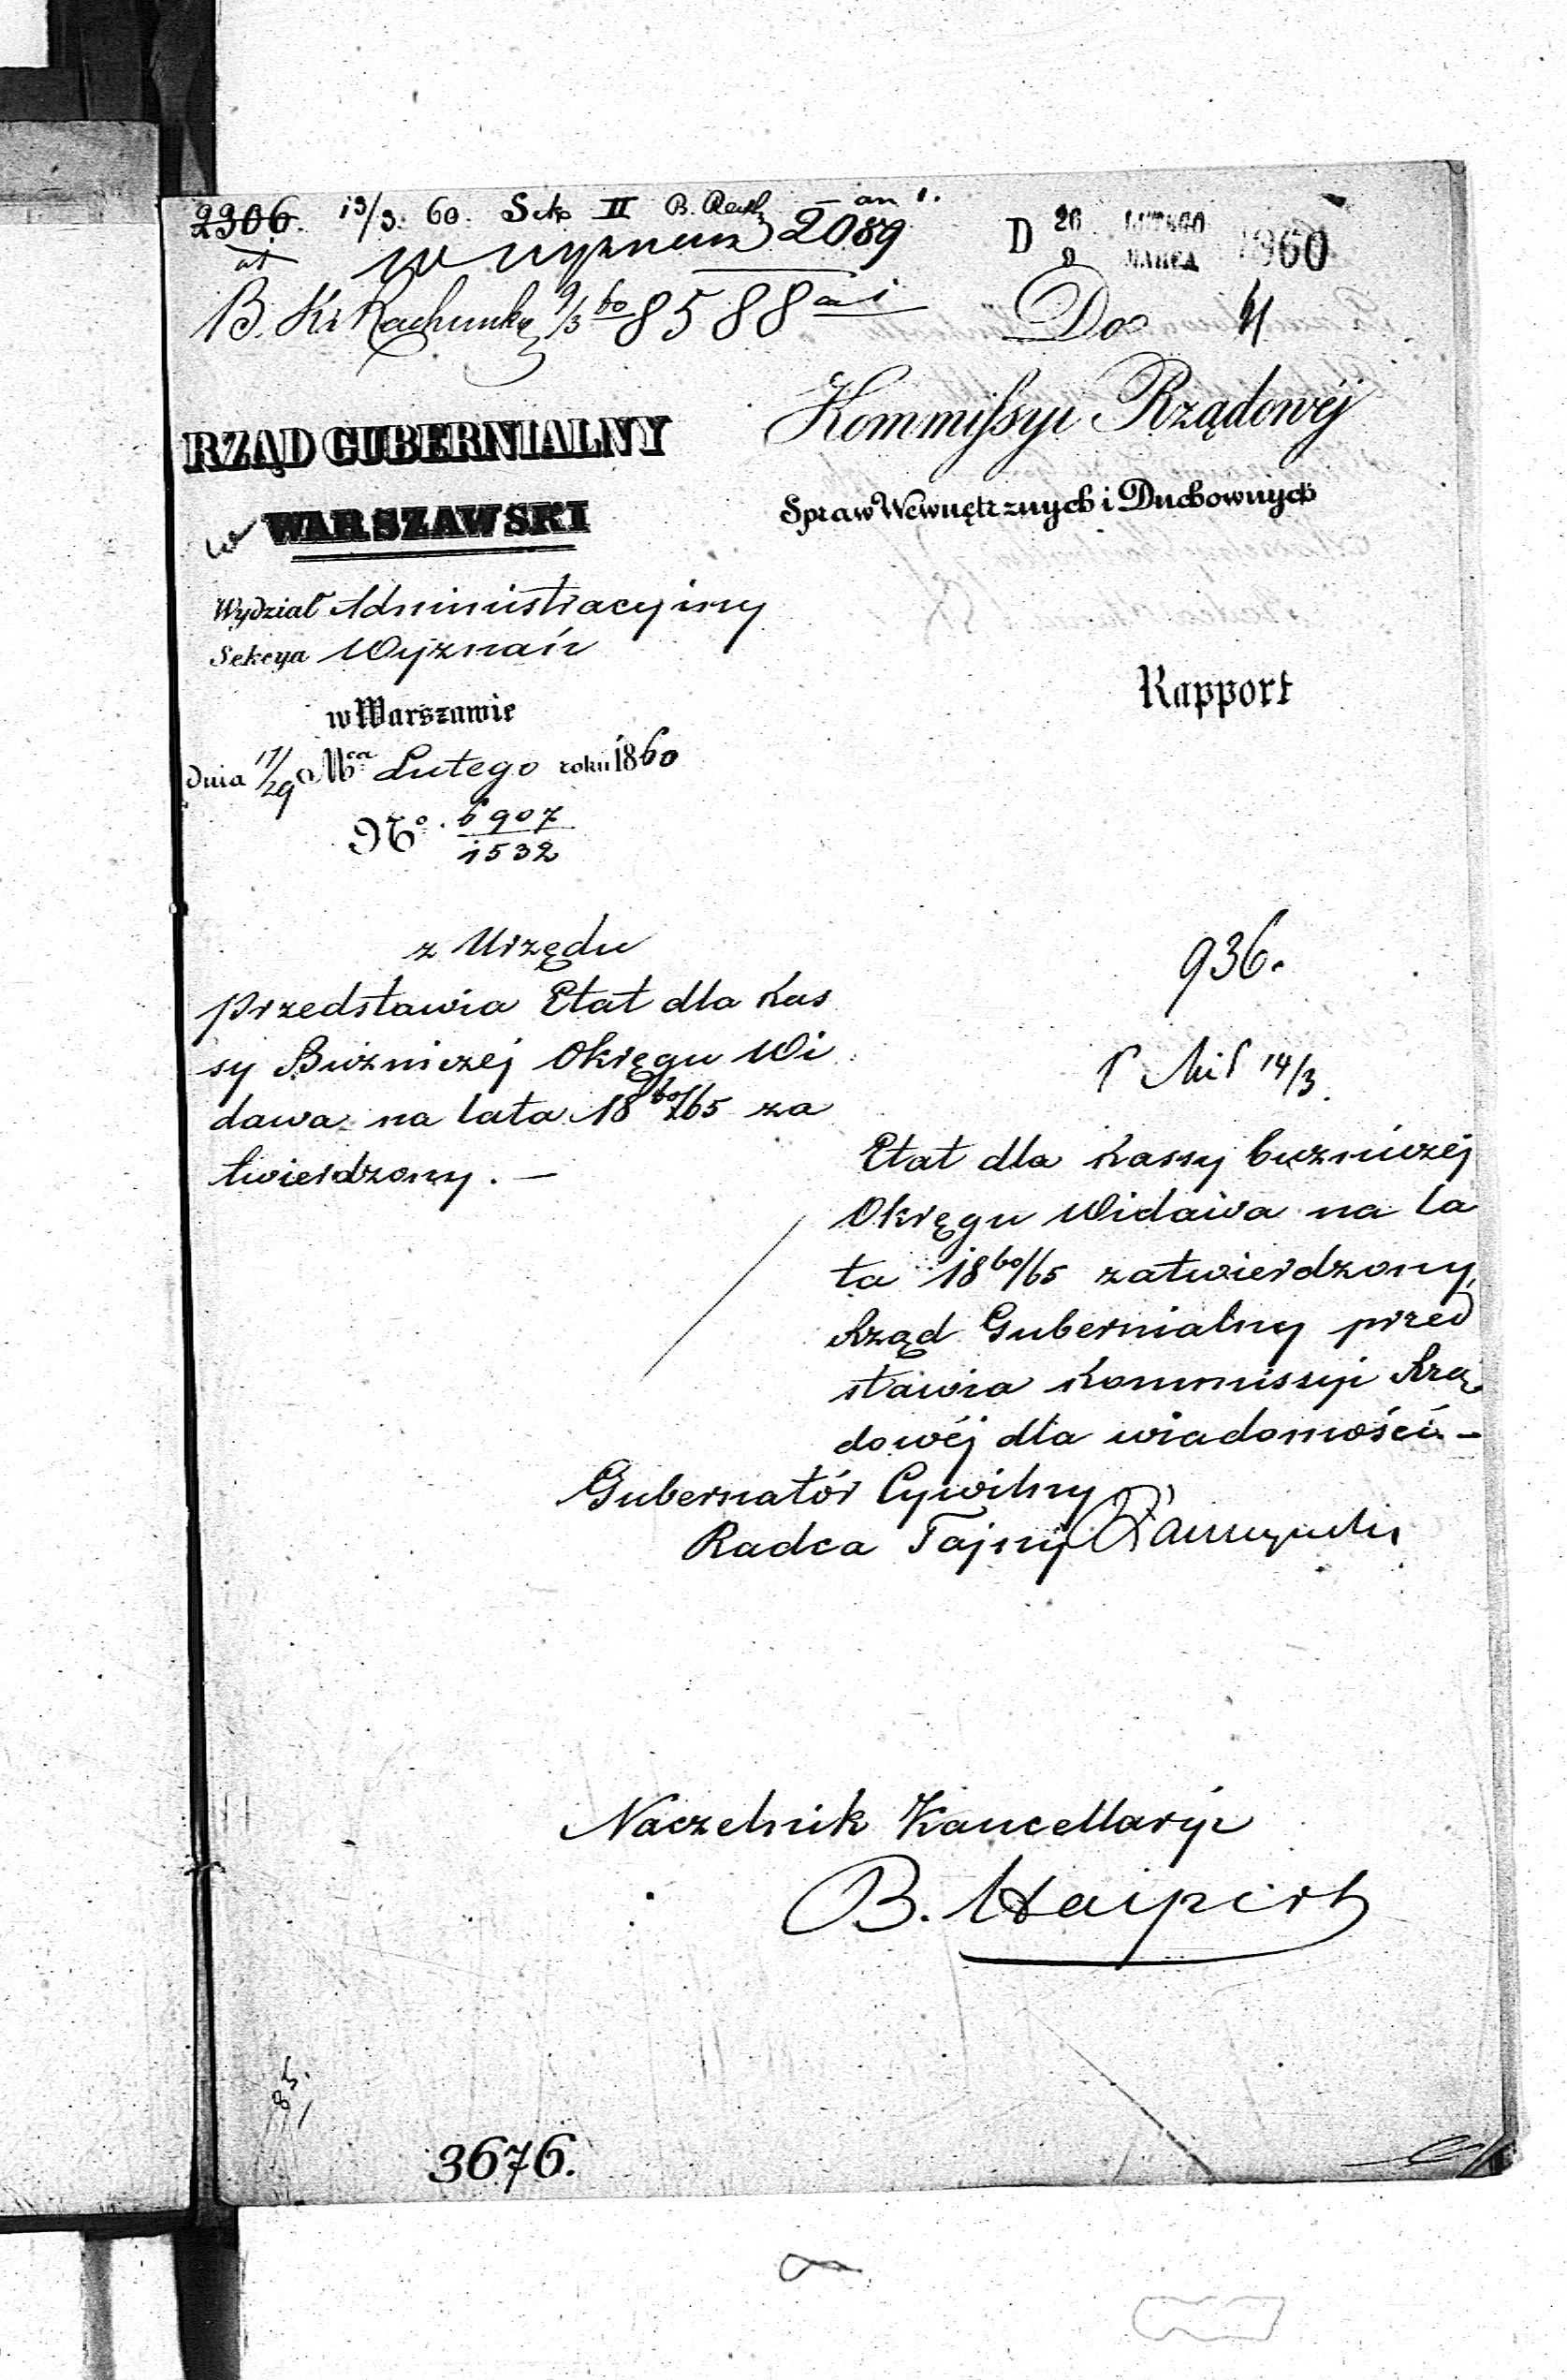 2306. 13/3. 60. Sek II B.
w wyznań 2089
D 26 LUTEGO 9 MARCA 1860
B. K. Rachunk 9/3 60 8588
Do
Kommissyi Rządowéj
Spraw Wewnętrznych i Duchownych
RZĄD GUBERNIALNY
WARSZAWSKI
Wydział Administracyiny
Sekcya Wyznań
w Warszawie
dnia 17/29 Mca Lutego roku 1860
No. 6907
1532
Rapport
z Urzędu
przedstawia Etat dla Kas
sy Bużniczej Okręgu Wi
dawa na lata 1860/65 za
twierdzony. —
936.
14/3.
Etat dla Kassy bużniczéj
Okręgu Widawa na la
ta 1860/65 zatwierdzony,
Rząd Gubernialny przed
stawia Kommissyi Rzą
dowéj dla wiadomości —
Gubernatór Cywilny
Radca Tajny
Naczelnik Kancellaryi
B.
85.
3676.